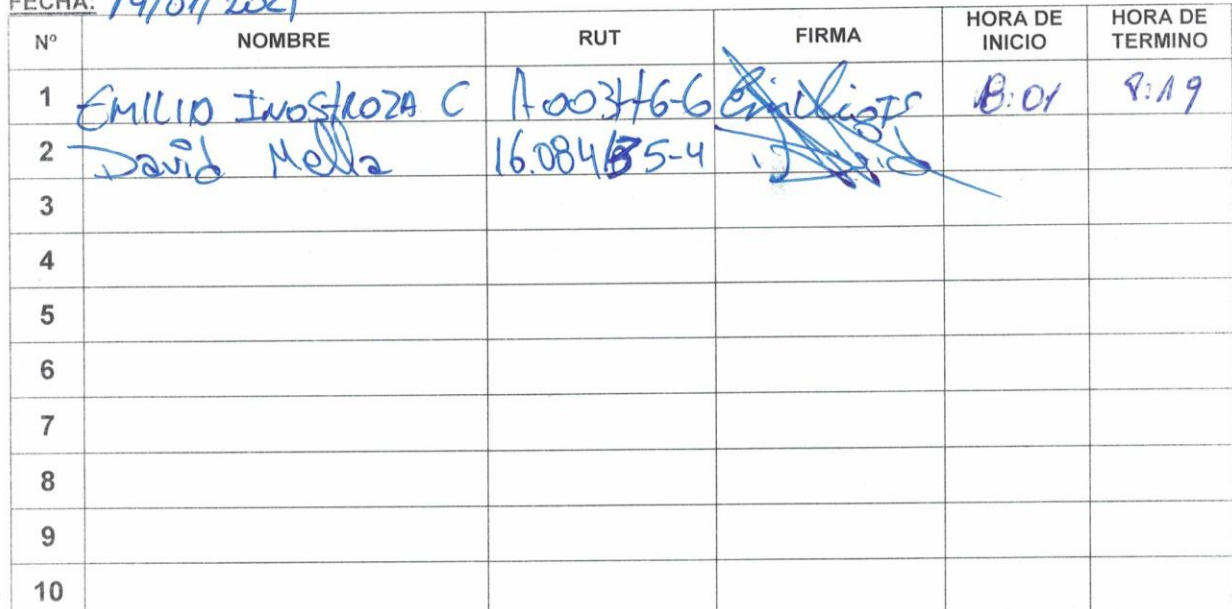 FECHA: 19/01/2021
Nº NOMBRE RUT FIRMA HORA DE INICIO HORA DE TERMINO
1 EMILIO INOSTROZA C 8:01 8:19
2 David Mella
3
4
5
6
7
8
9
10